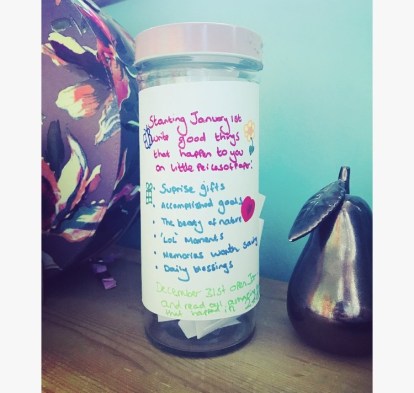 Starting January 1st
write good things
that happen to you
on little Peices of Paper:
• Suprise gifts
• Accomplished goals
• The beauty of nature
• 'LOL' Moments
• Memories worth saving
• Daily blessings
December 31st open Jar
and read all amazing
that happened in